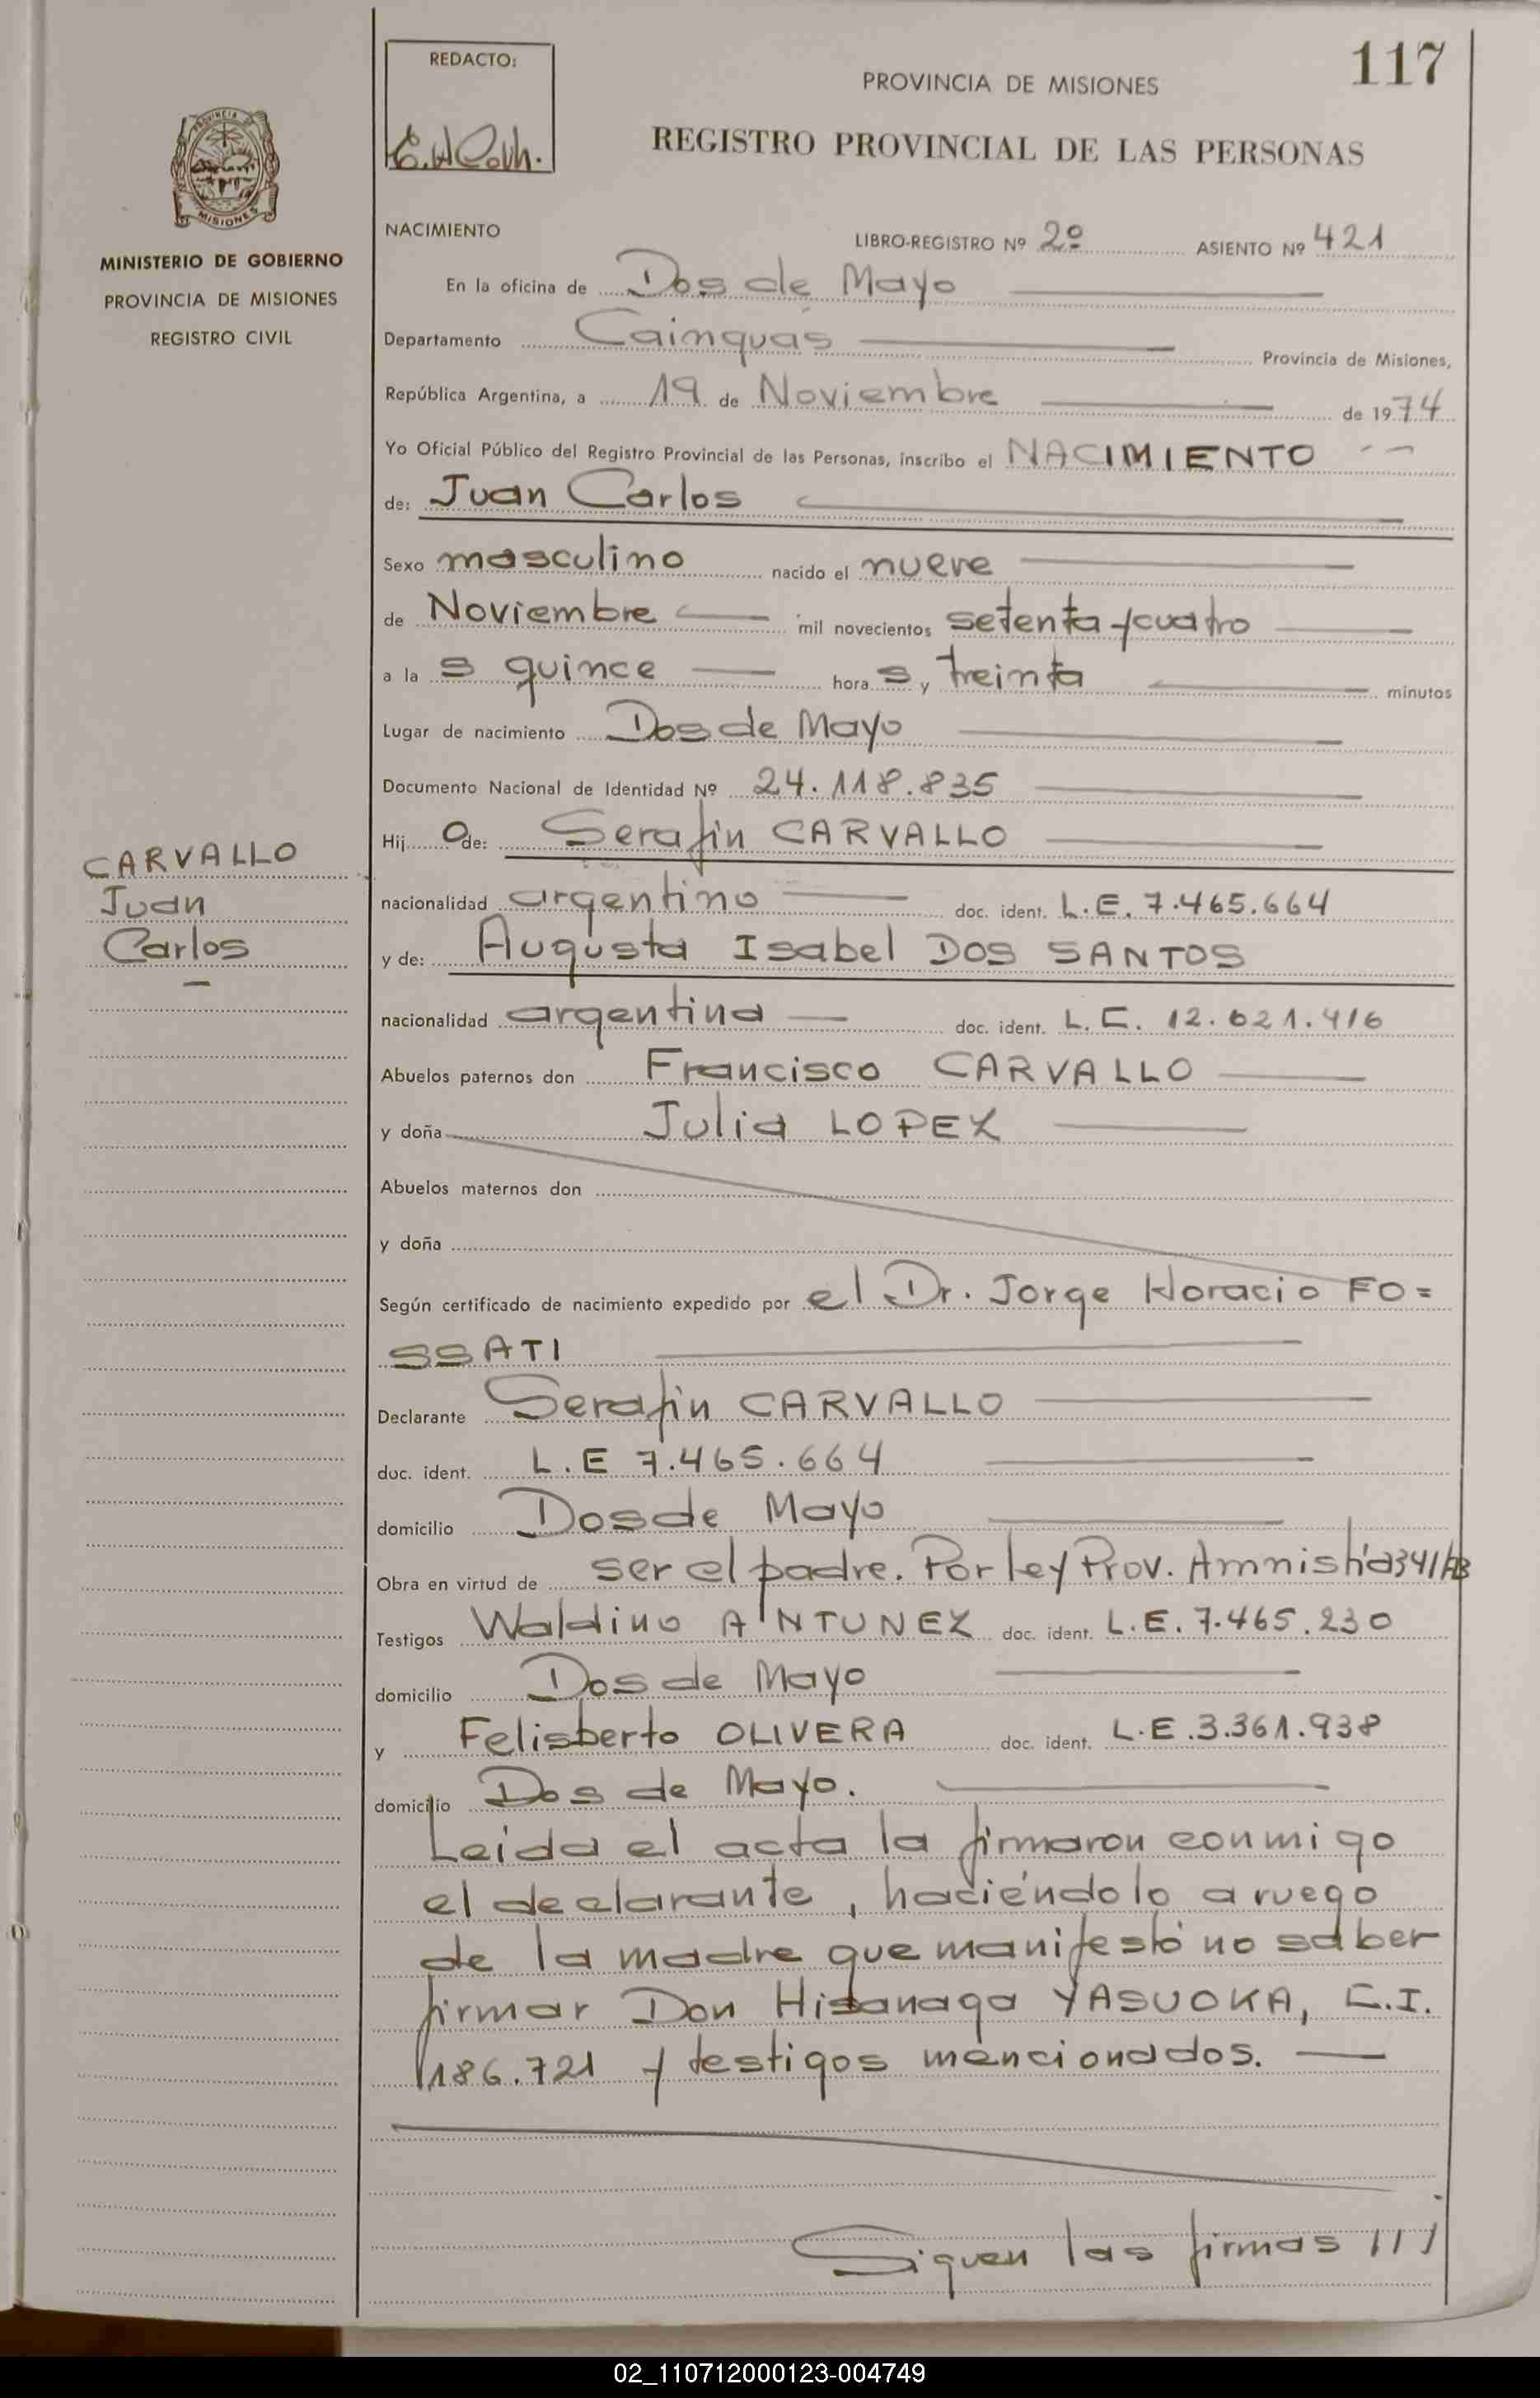 117
REDACTO:
PROVINCIA DE MISIONES
REGISTRO PROVINCIAL DE LAS PERSONAS
PROVINCIA DE
MISIONES
MINISTERIO DE GOBIERNO
PROVINCIA DE MISIONES
REGISTRO CIVIL
NACIMIENTO
LIBRO-REGISTRO Nº 2º ASIENTO Nº 421
En la oficina de Dos de Mayo
Departamento Cainguás Provincia de Misiones,
República Argentina, a 19 de Noviembre de 1974
Yo Oficial Público del Registro Provincial de las Personas, inscribo el NACIMIENTO
de: Juan Carlos
Sexo masculino nacido el nueve
de Noviembre mil novecientos setenta y cuatro
a la s quince hora s y treinta minutos
Lugar de nacimiento Dos de Mayo
Documento Nacional de Identidad Nº 24.118.835
Hij o de: Serafin CARVALLO
CARVALLO
Juan
Carlos
nacionalidad argentino doc. ident. L.E. 7.465.664
y de: Augusta Isabel DOS SANTOS
nacionalidad argentina doc. ident. L.C. 12.621.416
Abuelos paternos don Francisco CARVALLO
y doña Julia LOPEZ
Abuelos maternos don
y doña
Según certificado de nacimiento expedido por el Dr. Jorge Horacio FO=
SSATI
Declarante Serafin CARVALLO
doc. ident. L.E 7.465.664
domicilio Dos de Mayo
Obra en virtud de ser el padre. Por ley Prov. Amnistía 341/73
Testigos Waldino ANTUNEZ doc. ident. L.E. 7.465.230
domicilio Dos de Mayo
y Felisberto OLIVERA doc. ident. L.E.3.361.938
domicilio Dos de Mayo.
Leida el acta la firmaron conmigo
el declarante, haciéndolo a ruego
de la madre que manifestó no saber
firmar Don Hisanaga YASUOKA, C.I.
186.721 y testigos mencionados.
Siguen las firmas ///
02_110712000123-004749